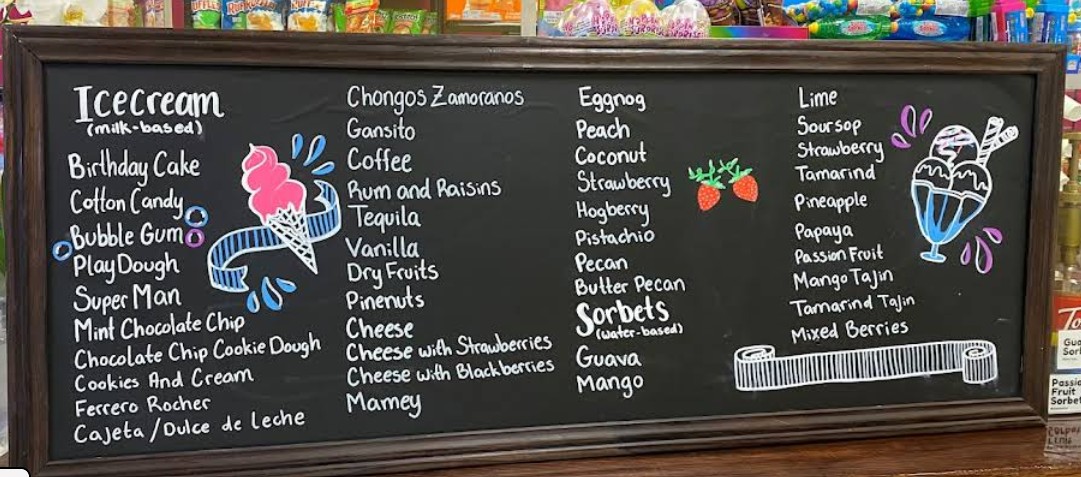 Icecream
(milk-based)
Birthday Cake
Cotton Candy
Bubble Gum
Play Dough
Super Man
Mint Chocolate Chip
Chocolate Chip Cookie Dough
Cookies And Cream
Ferrero Rocher
Cajeta/Dulce de Leche
Chongos Zamoranos
Gansito
Coffee
Rum and Raisins
Tequila
Vanilla
Dry Fruits
Pinenuts
Cheese
Cheese with Strawberries
Cheese with Blackberries
Mamey
Eggnog
Peach
Coconut
Strawberry
Hogberry
Pistachio
Pecan
Butter Pecan
Sorbets
(water-based)
Guava
Mango
Lime
Soursop
Strawberry
Tamarind
Pineapple
Papaya
Passion Fruit
Mango Tajin
Tamarind Tajin
Mixed Berries
Fruit